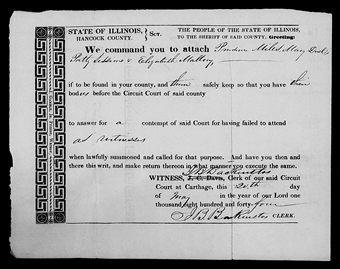 STATE OF ILLINOIS,
HANCOCK COUNTY.
Sct.
THE PEOPLE OF THE STATE OF ILLINOIS,
TO THE SHERIFF OF SAID COUNTY. Greeting:
We command you to attach Miles Mary
Patty Sessions & Elizabeth Mallory
if to be found in your county, and them safely keep so that you have their
bodies before the Circuit Court of said county
to answer for a contempt of said Court for having failed to attend
as witnesses
when lawfully summoned and called for that purpose. And have you then and
there this writ, and make return thereon in what manner you execute the same.
WITNESS, J. C. Davis, Clerk of our said Circuit
Court at Carthage, this 20th day
of May in the year of our Lord one
thousand eight hundred and forty-four
J B Backenstos CLERK.